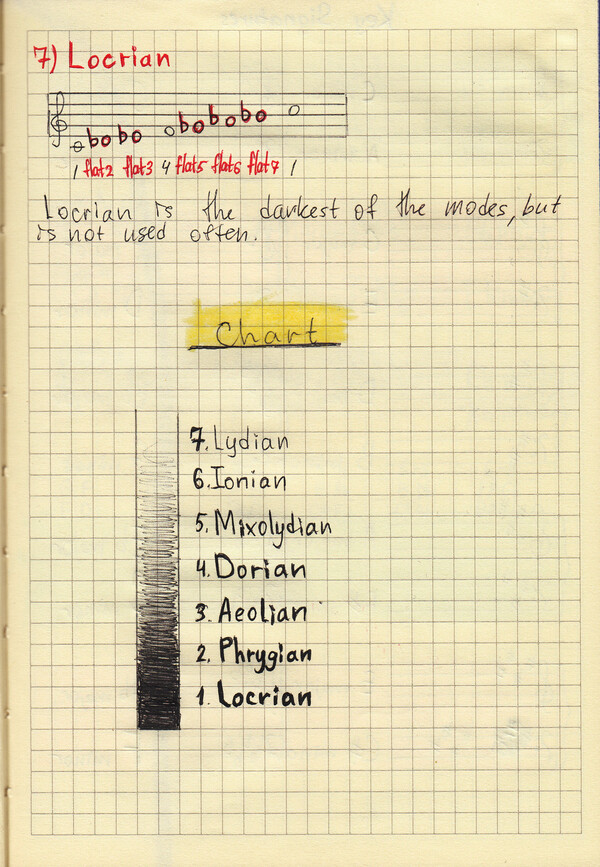 7) Locrian
1 flat2 flat3 4 flat5 flat6 flat7 1
Locrian is the darkest of the modes, but
is not used often.
Chart
7. Lydian
6. Ionian
5. Mixolydian
4. Dorian
3. Aeolian
2. Phrygian
1. Locrian